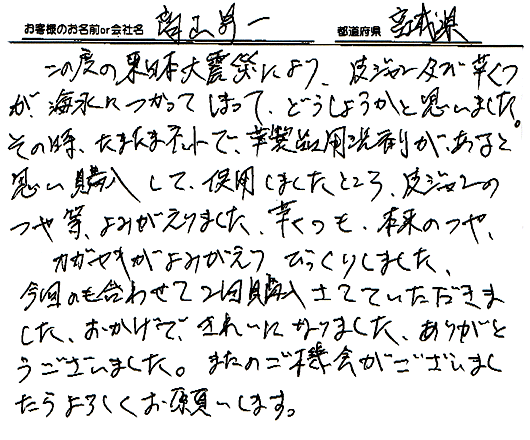 お客様のお名前or会社名 富山昇一 都道府県 宮城県
この度の東日本大震災により、皮ジャンタグが革くつ
が、海水につかってしまって、どうしようかと思いました。
その時、たまたまネットで、革製品用洗剤が、あると
思い購入して、使用しましたところ、皮ジャンの
つや等、よみがえりました、革くつも、本来のつや、
カガヤキがよみがえり びっくりしました、
今回のも合わせて2回購入させていただきま
した、おかげで、きれいになりました、ありがと
うございました。またのご機会がございまし
たらよろしくお願いします。